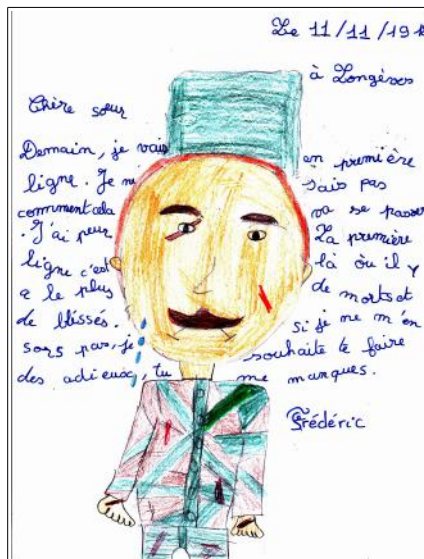 Le 11/11/19
à Longèves
Chère sœur
Demain, je vais en première
ligne. Je ne sais pas
comment cela va se passer
. J'ai peur La première
ligne c'est là où il y
a le plus de morts et
de bléssés. si je ne m'en
sors pas, je souhaite te faire
des adieux, tu me manques.
Frédéric